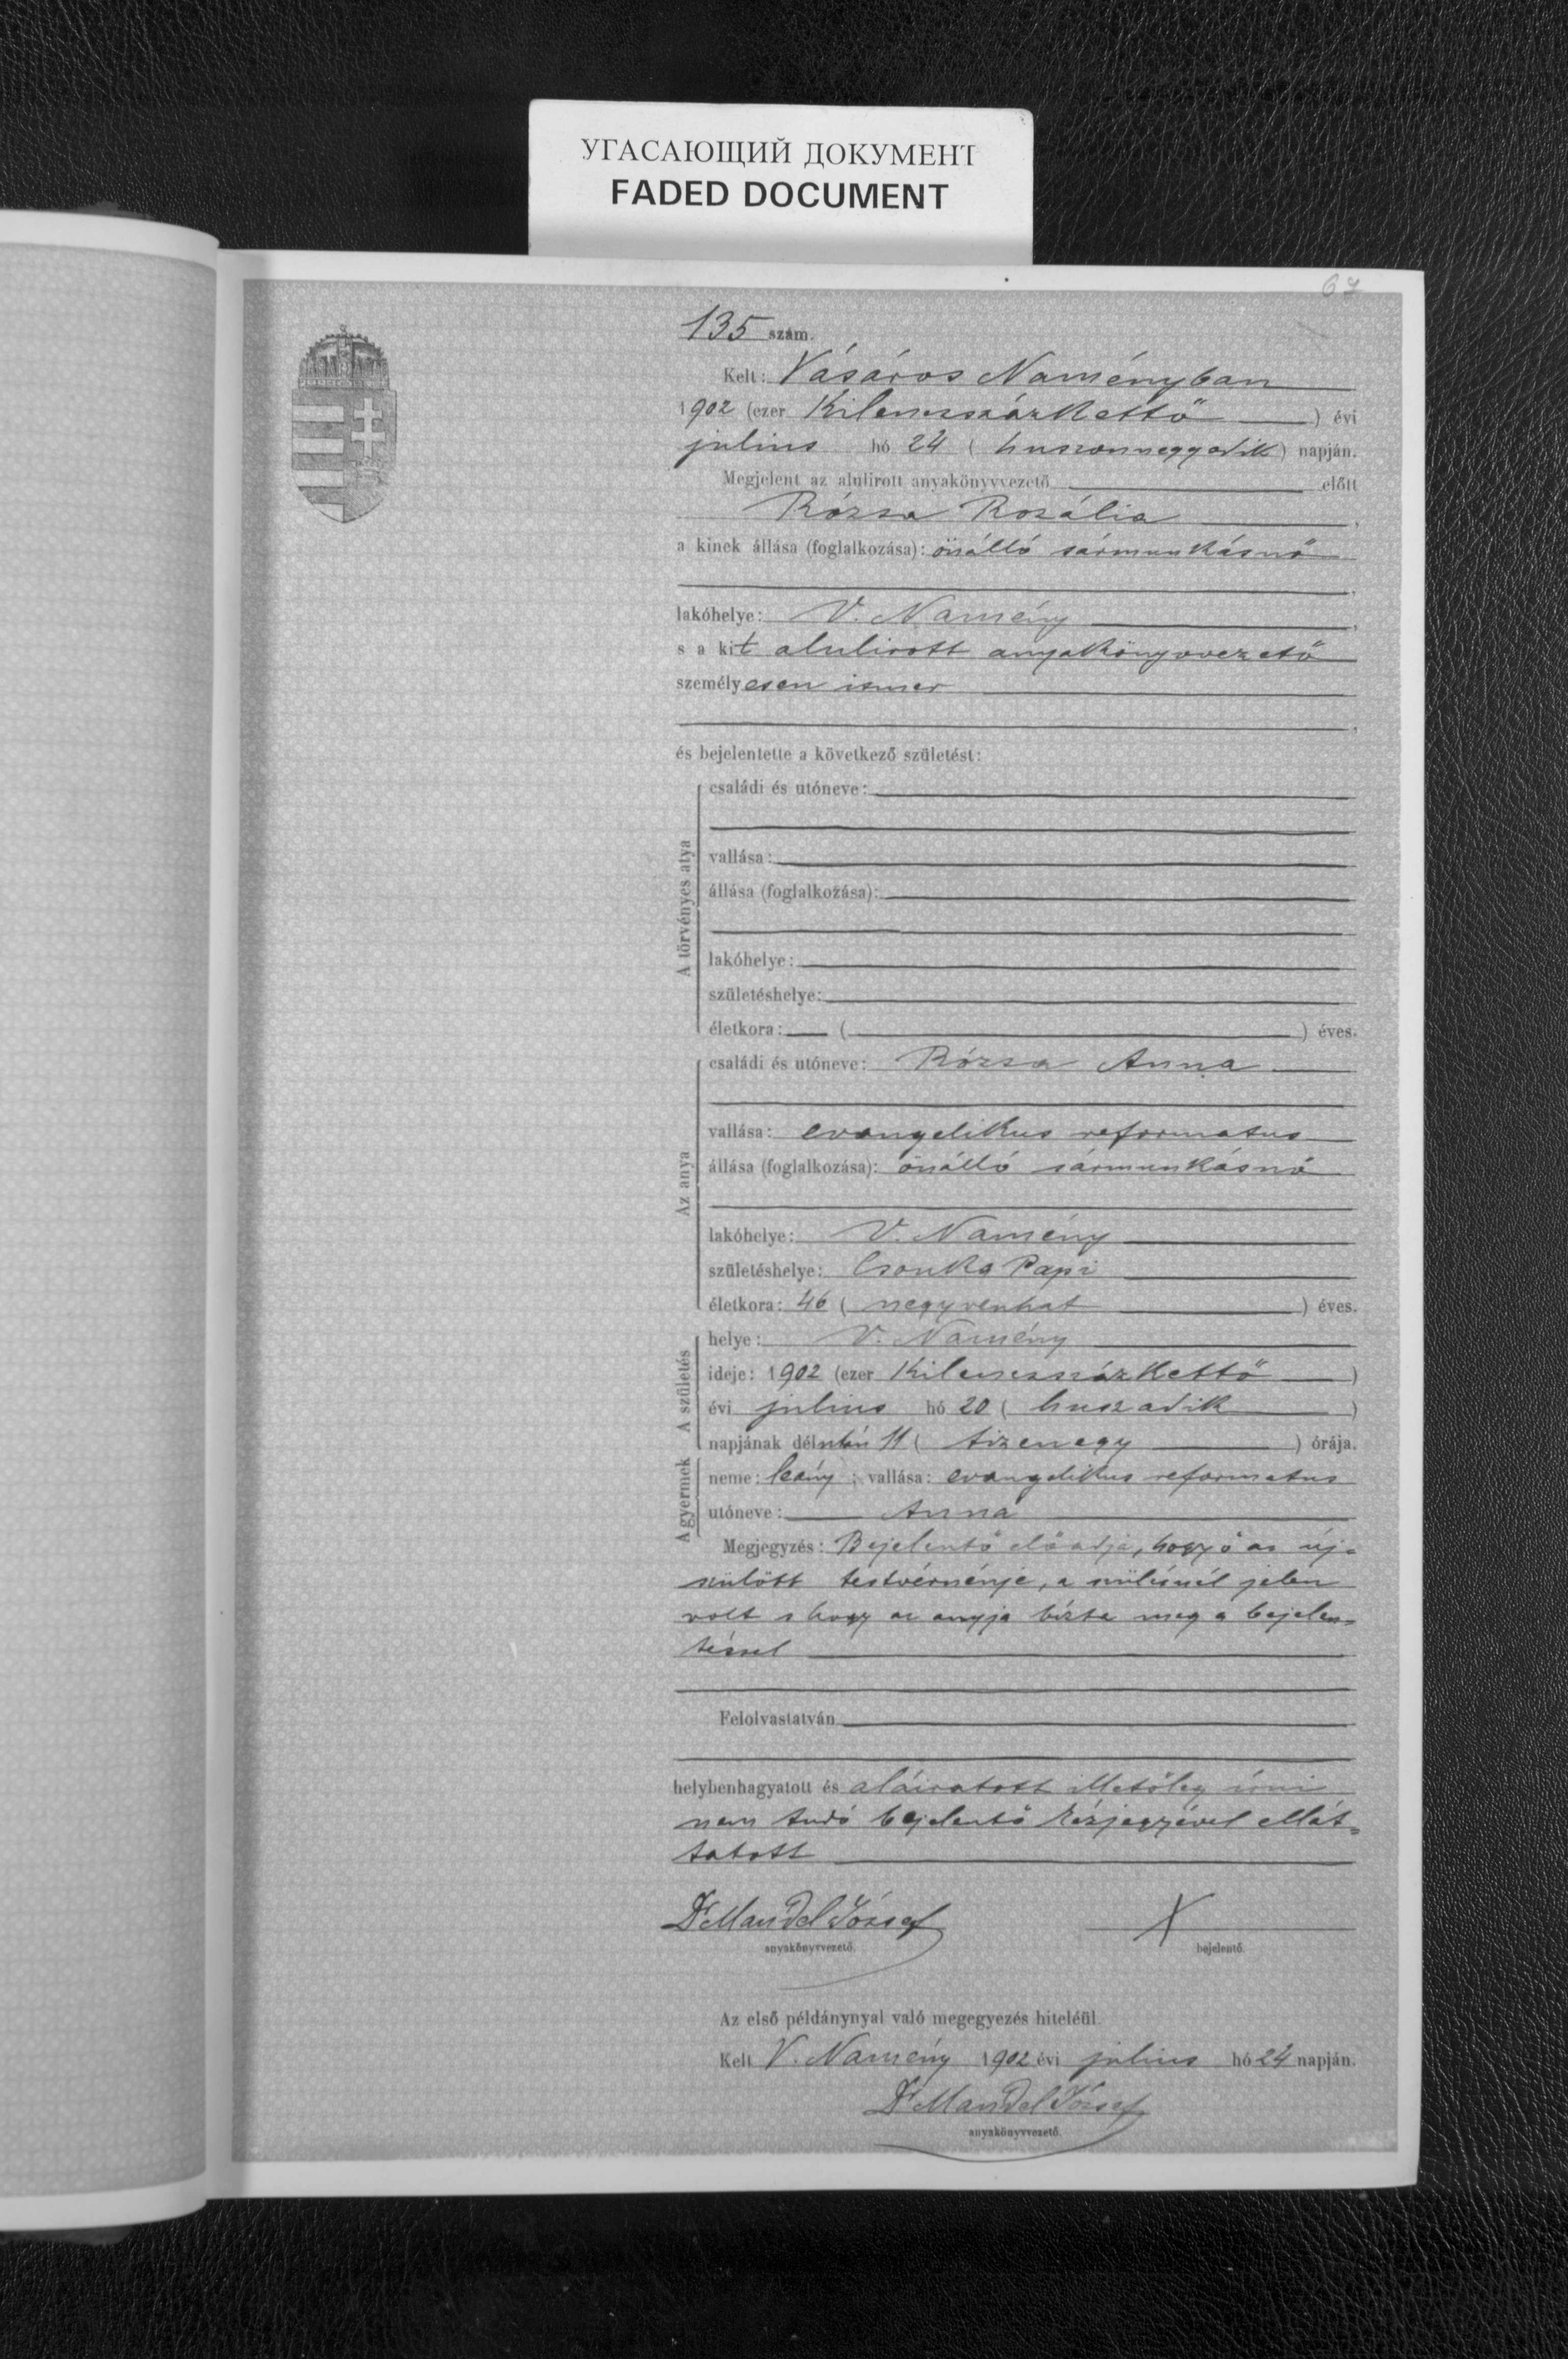 УГАСАЮЩИЙ ДОКУМЕНТ
FADED DOCUMENT
67
135 szám.
Kelt: Vásáros Naményban
1902 (ezer Kilenczszázkettő) évi
julius hó 24 (huszonnegyedik) napján.
Megjelent az alulirott anyakönyvvezető előtt
Rózsa Rozália,
a kinek állása (foglalkozása): önálló sármunkásnő
lakóhelye: V. Namény,
s a kit alulirott anyakönyvvezető
személyesen ismer
és bejelentette a következő születést:
A törvényes atya
családi és utóneve:
vallása:
állása (foglalkozása):
lakóhelye:
születéshelye:
életkora: ( ) éves.
Az anya
családi és utóneve: Rózsa Anna
vallása: evangelikus reformatus
állása (foglalkozása): önálló sármunkásnő
lakóhelye: V. Namény
születéshelye: Csonka Papi
életkora: 46 (negyvenhat) éves.
A születés
helye: V. Namény
ideje: 1902 (ezer Kilenczszázkettő)
évi julius hó 20 (huszadik)
napjának délután 11 (tizenegy) órája.
A gyermek
neme: leány; vallása: evangelikus reformatus
utóneve: Anna
Megjegyzés: Bejelentő előadja, hogy ő az új-
szülött testvérnénje, a szülésnél jelen
volt s hogy az anyja bízta meg a bejelen-
téssel
Felolvastatván
helybenhagyatott és aláiratott illetőleg írni
nem tudó bejelentő kézjegyével ellát-
tatott
Dr Mandel József X
anyakönyvvezető. bejelentő.
Az első példánynyal való megegyezés hiteléül.
Kelt V. Namény 1902 évi julius hó 24 napján.
Dr Mandel József
anyakönyvvezető.